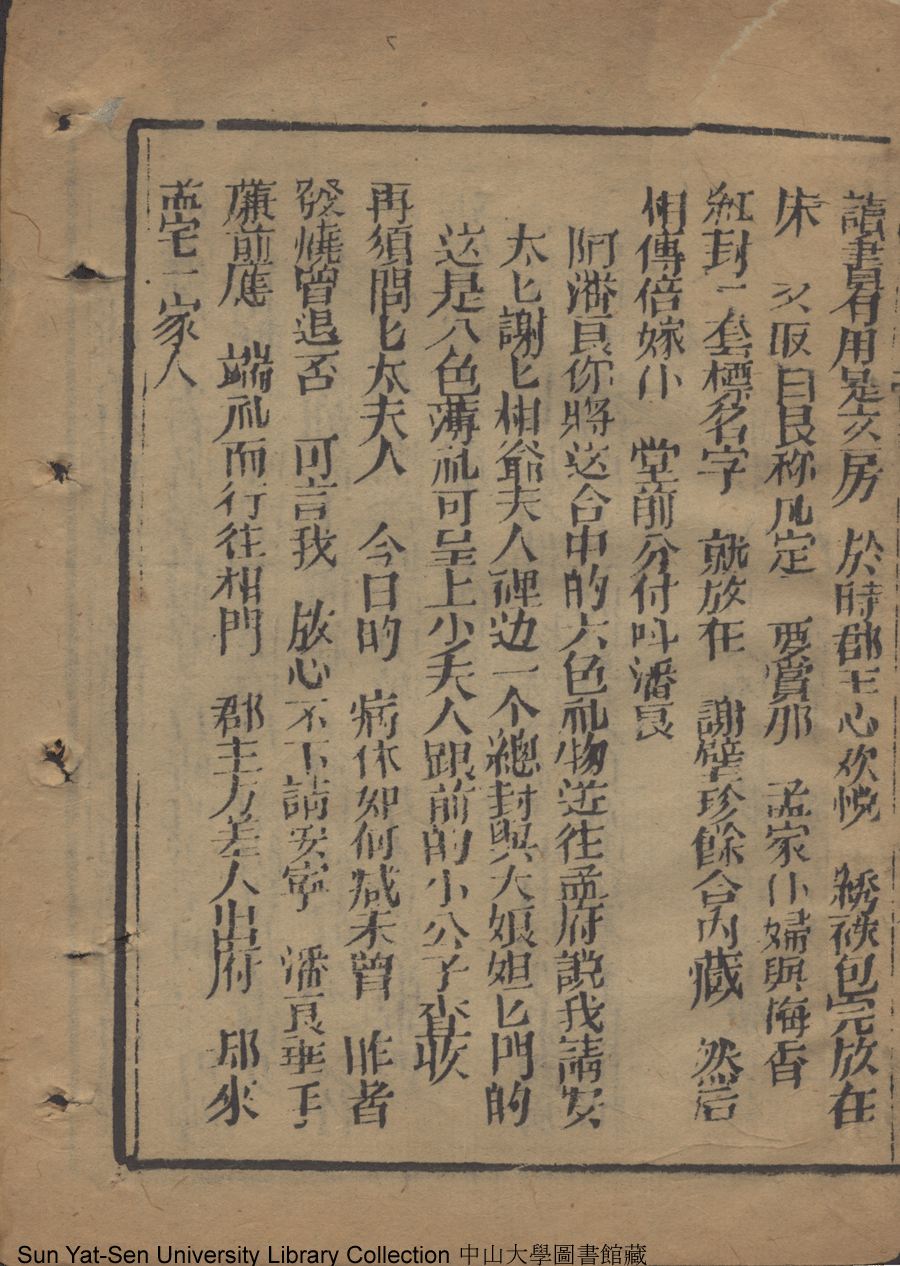 讀書看用是文房　於時郡主心欢悅　綉袱包完放在
床　又取白艮称几定　要賞那　孟家仆婦與海香
紅封一套標名字　就放在　謝壁珍餘合內藏　然后
相傳倍嫁仆　堂前分付呌潘良
阿潘良你將这合中的六色礼物送往孟府說我請安
太匕謝匕相爺夫人裡边一个總封與大娘妲匕門的
这是八色薄礼可呈上少夫人跟前的小公子查收
再須問匕太夫人　今日的　病休如何减未曾　昨者
發燒曾退否　可言我　放心不下請安寧　潘良垂手
蔴前應　端礼而行往相門　郡主方差人出府　却來
孟宅一家人
Sun Yat-Sen University Library Collection 中山大學圖書館藏